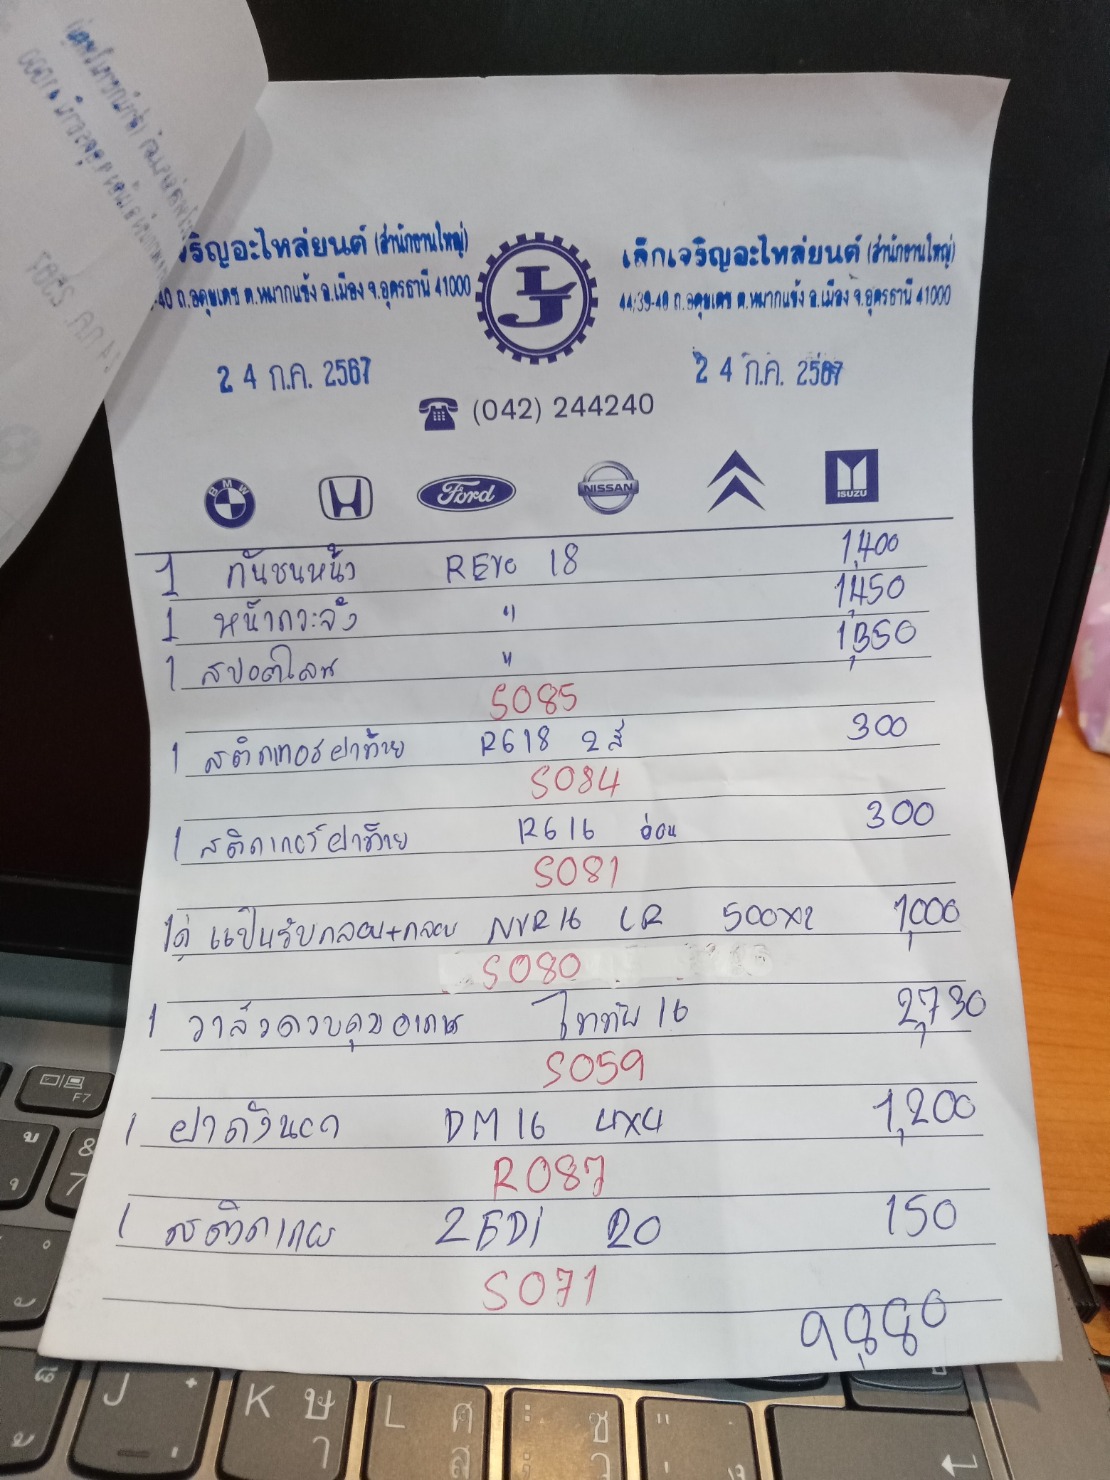 ริญอะไหล่ยนต์ (สำนักงานใหญ่)
-40 ถ.อดุมเดช ต.หมากแข้ง อ.เมือง จ.อุดรธานี 41000
เล็กเจริญอะไหล่ยนต์ (สำนักงานใหญ่)
44/39-40 ถ.อดุมเดช ต.หมากแข้ง อ.เมือง จ.อุดรธานี 41000
LJ
24 ก.ค. 2567
24 ก.ค. 2567
(042) 244240
BMW
H
Ford
NISSAN
ISUZU
1 กันชนหน้า REVO 18 1,400
1 หน้ากระจัง " 1,450
1 สปอตไลน " 1,350
S085
1 สติกเกอร์ฝาท้าย RG18 2 สี 300
S084
1 สติกเกอร์ฝาท้าย RG16 อ่อน 300
S081
1คู่ แป้นรับกลอน+กลอน NVR16 LR 500x2 1,000
S080
1 วาล์วควบคุม ไททัน 16 2,730
S059
1 ฝาถังนอก DM16 4x4 1,200
R087
1 สติกเกอร์ 20 150
S071
9,880
F7
8
7
J
K ษ
า
L ศ
ส
: ซ
; ว
"
'